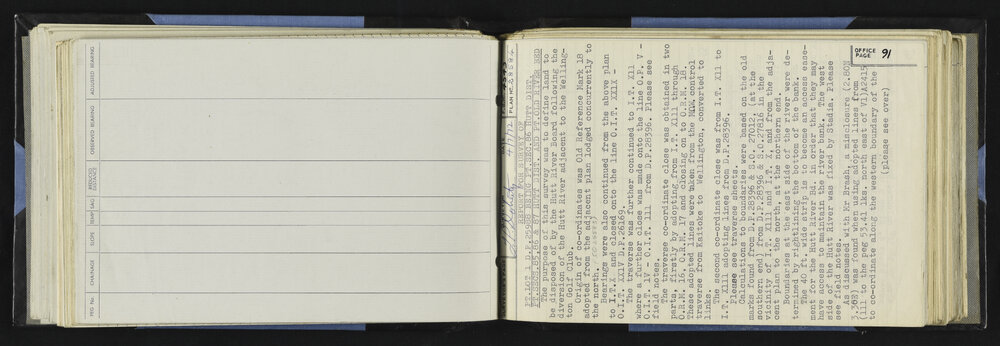 PEG No.
CHAINAGE
SLOPE
TEMP / SAG
OBSERVED BEARING
ADJUSTED BEARING
OFFICE
PAGE 91
PLAN NO.
4/7/72
REPORT FOR SURVEY OF
PT.LOT 1 D.P. 25928 BEING PT.SEC.86 HUTT DIST.
HUTT DIST. AND PT.OLD RIVER BED
The purpose of this survey was to define land to
be disposed of by the Hutt River Board following the
diversion of the Hutt River adjacent to the Welling-
ton Golf Club.
Origin of co-ordinates was Old Reference Mark 18
adopted from the adjacent plan lodged concurrently to
the north.
Bearings were also continued from the above plan
to I.T. X and closed onto the line O.I.T. XXII -
O.I.T. XXIV D.P.26169.
The traverse was further continued to I.T. XII
where a further close was made onto the line O.P. V -
O.I.T. IV - O.I.T. III from D.P.28396. Please see
field notes.
The traverse co-ordinate close was obtained in two
parts, firstly by adopting from I.T. XIII through
O.R.M. 16, O.R.M. IV and closing on to O.R.M. 18.
These adopted lines were taken from the MOW control
traverse from Kaitoke to Wellington, converted to
links.
The second co-ordinate close was from I.T. XII to
I.T. XIII adopting lines from D.P.28396.
Please see traverse sheets.
Calculations to boundaries were based on the old
marks found from D.P.28396 & S.O. 27012, (at the
southern end) from D.P.28396 & S.O.27816 in the
vicinity of I.T. XII and I.T. X, and from the adja-
cent plan to the north, at the northern end.
Boundaries at the east side of the river were de-
termined by rightlining the bottom of the bank.
The 40 ft. wide strip is to become an access ease-
ment for the Hutt River Bd. in order that they may
have access to maintain the river bank. The west
side of the Hutt River was fixed by Stadia. Please
see field notes.
As discussed with Mr Brash, a misclosure (2.80N
3.26E) was found when using adopted lines from
(1) to the peg 53.41 lks. north east of VI)A2415
to co-ordinate along the western boundary of the
(please see over)